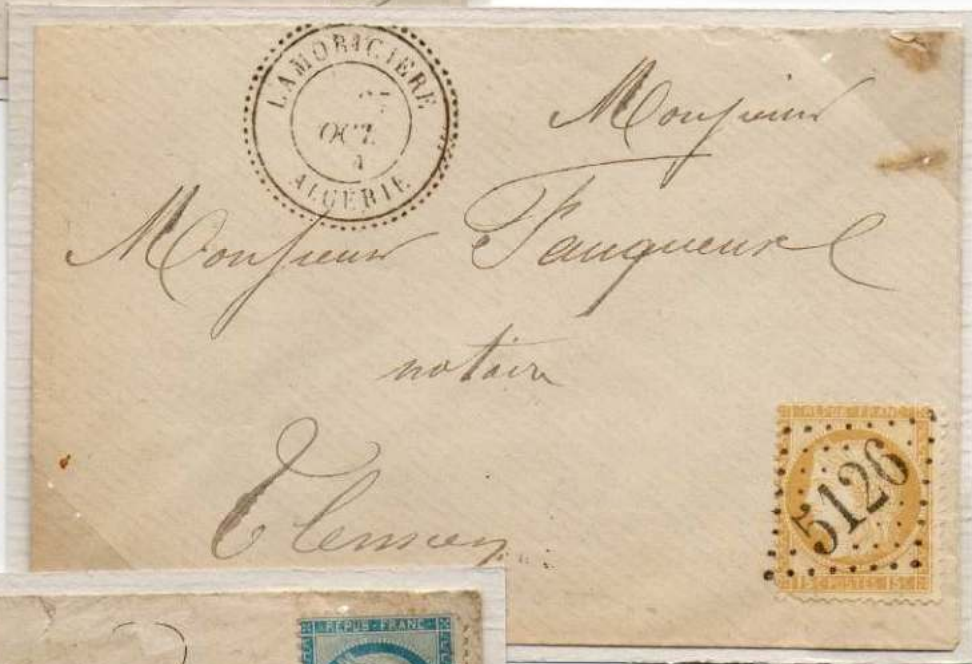 LAMORICIERE
OCT.
ALGÉRIE
Monsieur
Monsieur Fauqueux
notaire
Tlemcen
REPUB·FRANC
5126
15 C POSTES 15 C
REPUB·FRANC